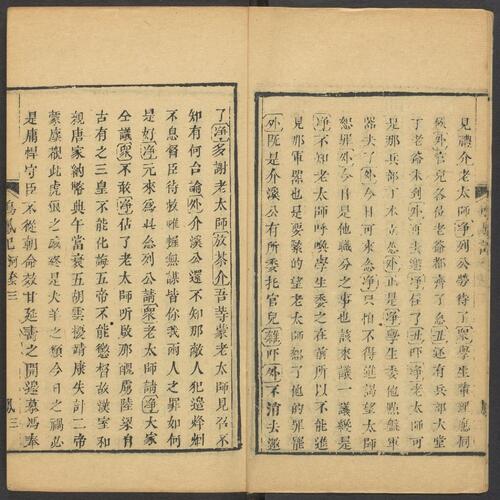 見禮介老太師淨列公勞待了衆學生輩理應伺
候外官兒各位老爺都齊了麼丑還有兵部大堂
丁老爺未到外再淨怪了丑吓淨老太師可
是那兵部丁本立麼外正是淨學生委他點盤軍
器去了外今日可來麼淨只怕不得進謁望老太師
恕罪外今日是他職分之事也該來議一議纔是
淨不知老太師呼喚學生委之在前所以不能進
見那軍器也是要緊的望老太師了他的罪罷
外既是介溪公有所委托官兒雜吓外不消去邀
了淨多謝老太師放茶介吾等蒙老太師見召不
知有何台諭外介溪公還不知那敵人犯邊烽烟
不息督臣待救帷幄無謀皆你我兩人之罪如何
是好淨元來爲此台列公請衆老太師請淨大家
仝議衆不敢淨佔了老太師聽啟那醜虜陸梁自
古有之三皇不能化誨五帝不能懲督故漢室和
親唐家納幣典午當衰五胡雲擾靖康失計二帝
蒙塵觀此虎狼之威終是犬羊之類今日之禍必
是庸悍守臣不從朝命效甘延壽之開邊慕馮奉
鳴鳳記 卷三 鳳 三